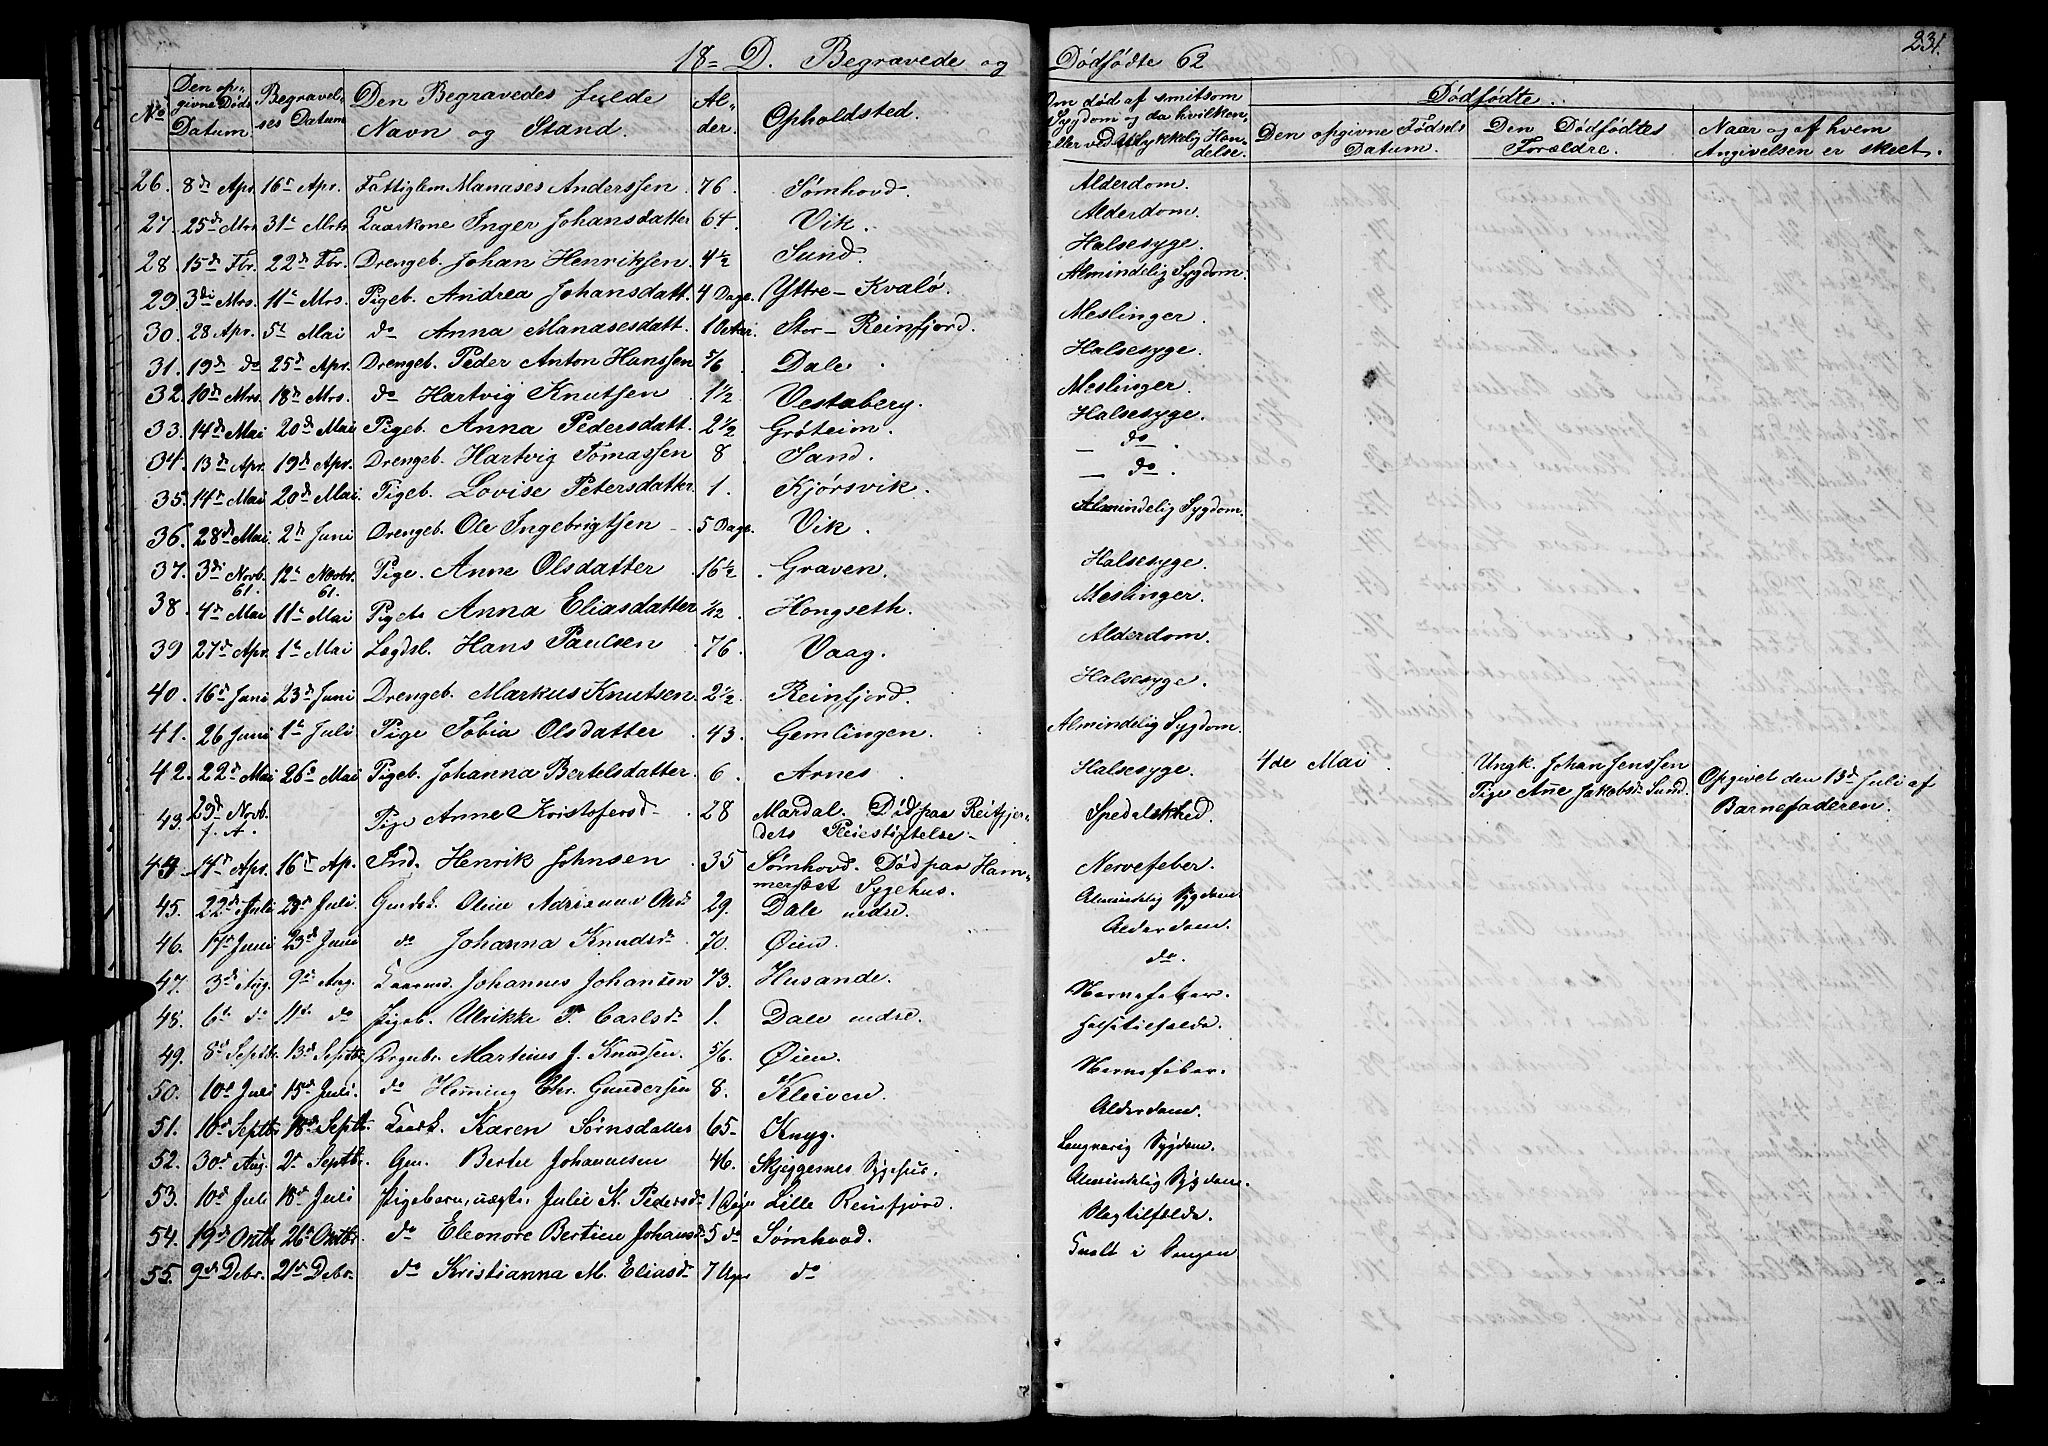 18= D. Begravede og Dødfødte 62
231.
No
Den opgivne Døds Datum
Begravelses Datum
Den Begravedes fulde Navn og Stand.
Alder.
Opholdsted.
Om død af smitsom Sygdom og da hvilken, eller ved ulykkelig Hændelse.
Dødfødte.
Den opgivne Fødsels Datum.
Den Dødfødtes Forældre.
Naar og af hvem Angivelsen er skeet.
26. 8de Apr. 16de Apr. Fattiglem Manases Anderssen 76. Sømhovd. Alderdom.
27. 25de Mrs. 31te Mrts Kaarkone Inger Johansdatter 64. Vik. Alderdom.
28. 15de Fbr. 22de Fbr. Drengeb. Johan Henriksen 4 1/2 Sund. Halsesyge.
29. 3die Mrs. 11te Mrs. Pigeb. Andrea Johansdatt. 4 Dage. Yttre-Kvalø. Almindelig Sygdom.
30. 28 Apr. 5te Mai do Anna Manasesdatt. Stor-Reinfjord. Meslinger.
31. 19de do 25de Apr. Drengeb. Peder Anton Hanssen 5/6 Dale. Halsesyge.
32. 10de Mrs. 18de Mrs. do Hartvig Knutsen 1 1/2 Vestaberg. Meslinger.
33. 14de Mai 20de Mai Pigeb. Anna Pedersdatt. 2 1/2 Grøteim. Halsesyge.
34. 13de Apr. 19de Apr. Drengeb. Hartvig Tomassen 8 Sand. — do.
35. 14de Mai 20de Mai. Pigeb. Lovise Petersdatter 1. Kjørsvik. — do.
36. 28de Mai 2den Juni Drengeb. Ole Ingebrigtsen 5 Dage. Vik. Almindelig Sygdom.
37. 3die Novb. 61. 12te Novbr. 61. Pige. Anne Olsdatter 16 1/2. Graven. Halsesyge.
38. 4de Mai 11te Mai Pigeb. Anna Eliasdatter 1/12. Hongseth. Meslinger.
39 27de Apr. 1te Mai Lægdsl. Hans Paulsen 76. Vaag. Alderdom.
40. 16de Juni 23de Juni Drengeb. Markus Knutsen 2 1/2. Reinfjord. Halsesyge.
41. 26 Juni 1te Juli Pige Tobia Olsdatter 43. Gemlingen. Almindelig Sygdom.
42. 22de Mai 26de Mai Pigeb. Johanna Bertelsdatter 6. Arnes. Halsesyge.
4de Mai. Ungk. Johan Jenssen Pige Ane Jakobsdr Sund. Opgivet den 13de Juli af Barnefaderen.
43. 23de Novb. f. A. Pige Anne Kristofersdr 28 Mardal. Død paa Reitgjerdets Pleiestiftelse. Spedalskhed.
44. 14de Apr. 16de Ap. Ind. Henrik Johnsen 35 Sømhovd. Død paa Hammerfæst Sygehus. Nervefeber.
45. 22de Juli 28de Juli. Oline 29. Dale nedre. Almindelig Sygdom
46. 17de Juni 23de Juni do Johanna Knudsdr 70. Øien. Alderdom.
47. 3die Aug. 9de Aug. Johannes Johansen 73. Husande. do.
48. 6te do 11te do Pigeb. Ulrikke P. Carlsdr 1. Dale nedre. Nervefeber.
49. 8de Septbr. 13de Septbr. Drgebr. Martinus J. Knudsen. 5/6. Øien.
50. 10de Juli 15de Juli. do Heming Chr. Gundersen 8. Kleiven. Nervefeber.
51. 10de Septbr 18de Septbr. Karen Sørnsdatter 65- Knyg. Alderdom.
52. 30de Aug. 2den Septbr. Gm. Johannesen 46. Skjeggesnes Sygehus. Langvarig Sygdom.
53. 10de Juli 18de Juli Pigebarn, uægte, Julie K. Pedersdr Lille Reinfjord. Almindelig Sygdom.
54. 19de Octbr 26de Octbr. do Eleonore Bertine Johansdr 5 do Sømhovd. Slagtilfælde.
55. 9de Debr. 21de Debr. do Kristianna M. Eliasdr 7 Uger do Qvalt i Sengen